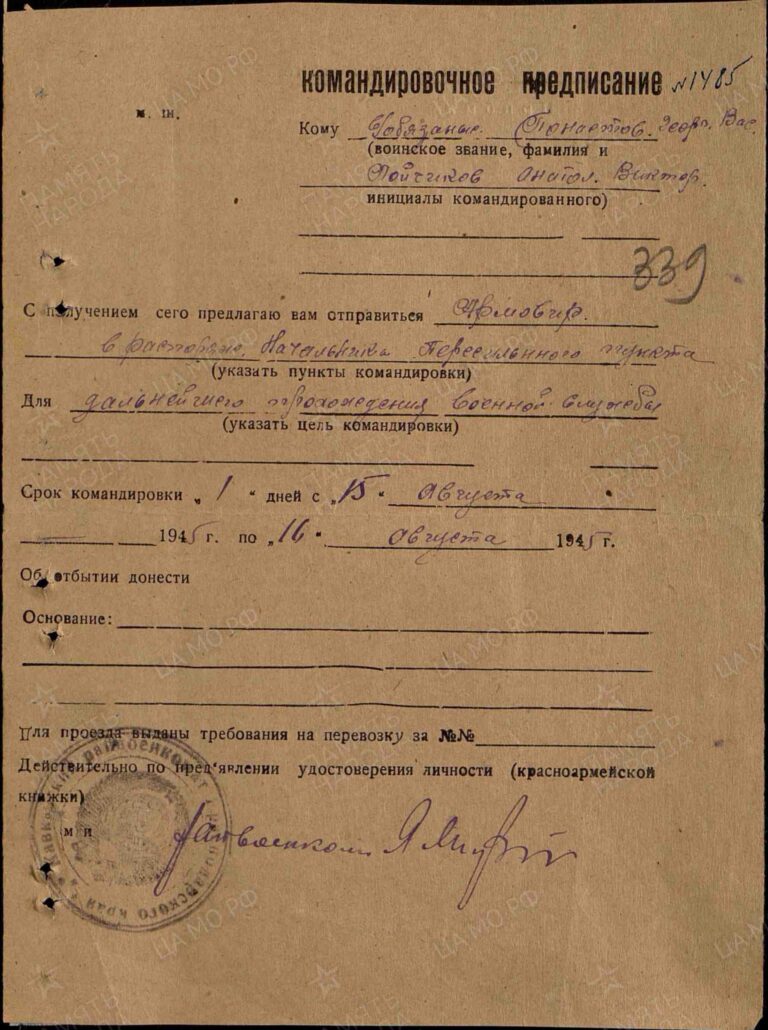 командировочное предписание №1485
м. ш.
Кому Обязаные. Понаетов. Георг. Вас.
(воинское звание, фамилия и
Пойчиков Анатол. Виктор.
инициалы командированного)
339
С получением сего предлагаю вам отправиться Армавир.
в распоряж. Начальника Пересыльного пункта
(указать пункты командировки)
Для дальнейшего прохождения военной службы
(указать цель командировки)
Срок командировки „ 1 “ дней с „15“ Августа
1945 г. по „16“ Августа 1945 г.
Об отбытии донести
Основание:
Для проезда выданы требования на перевозку за №№
Действительно по пред'явлении удостоверения личности (красноармейской
книжки)
м п
Райвоенком
Кавказский райвоенкомат Краснодарского края
ЦАМО РФ
ПАМЯТЬ НАРОДА